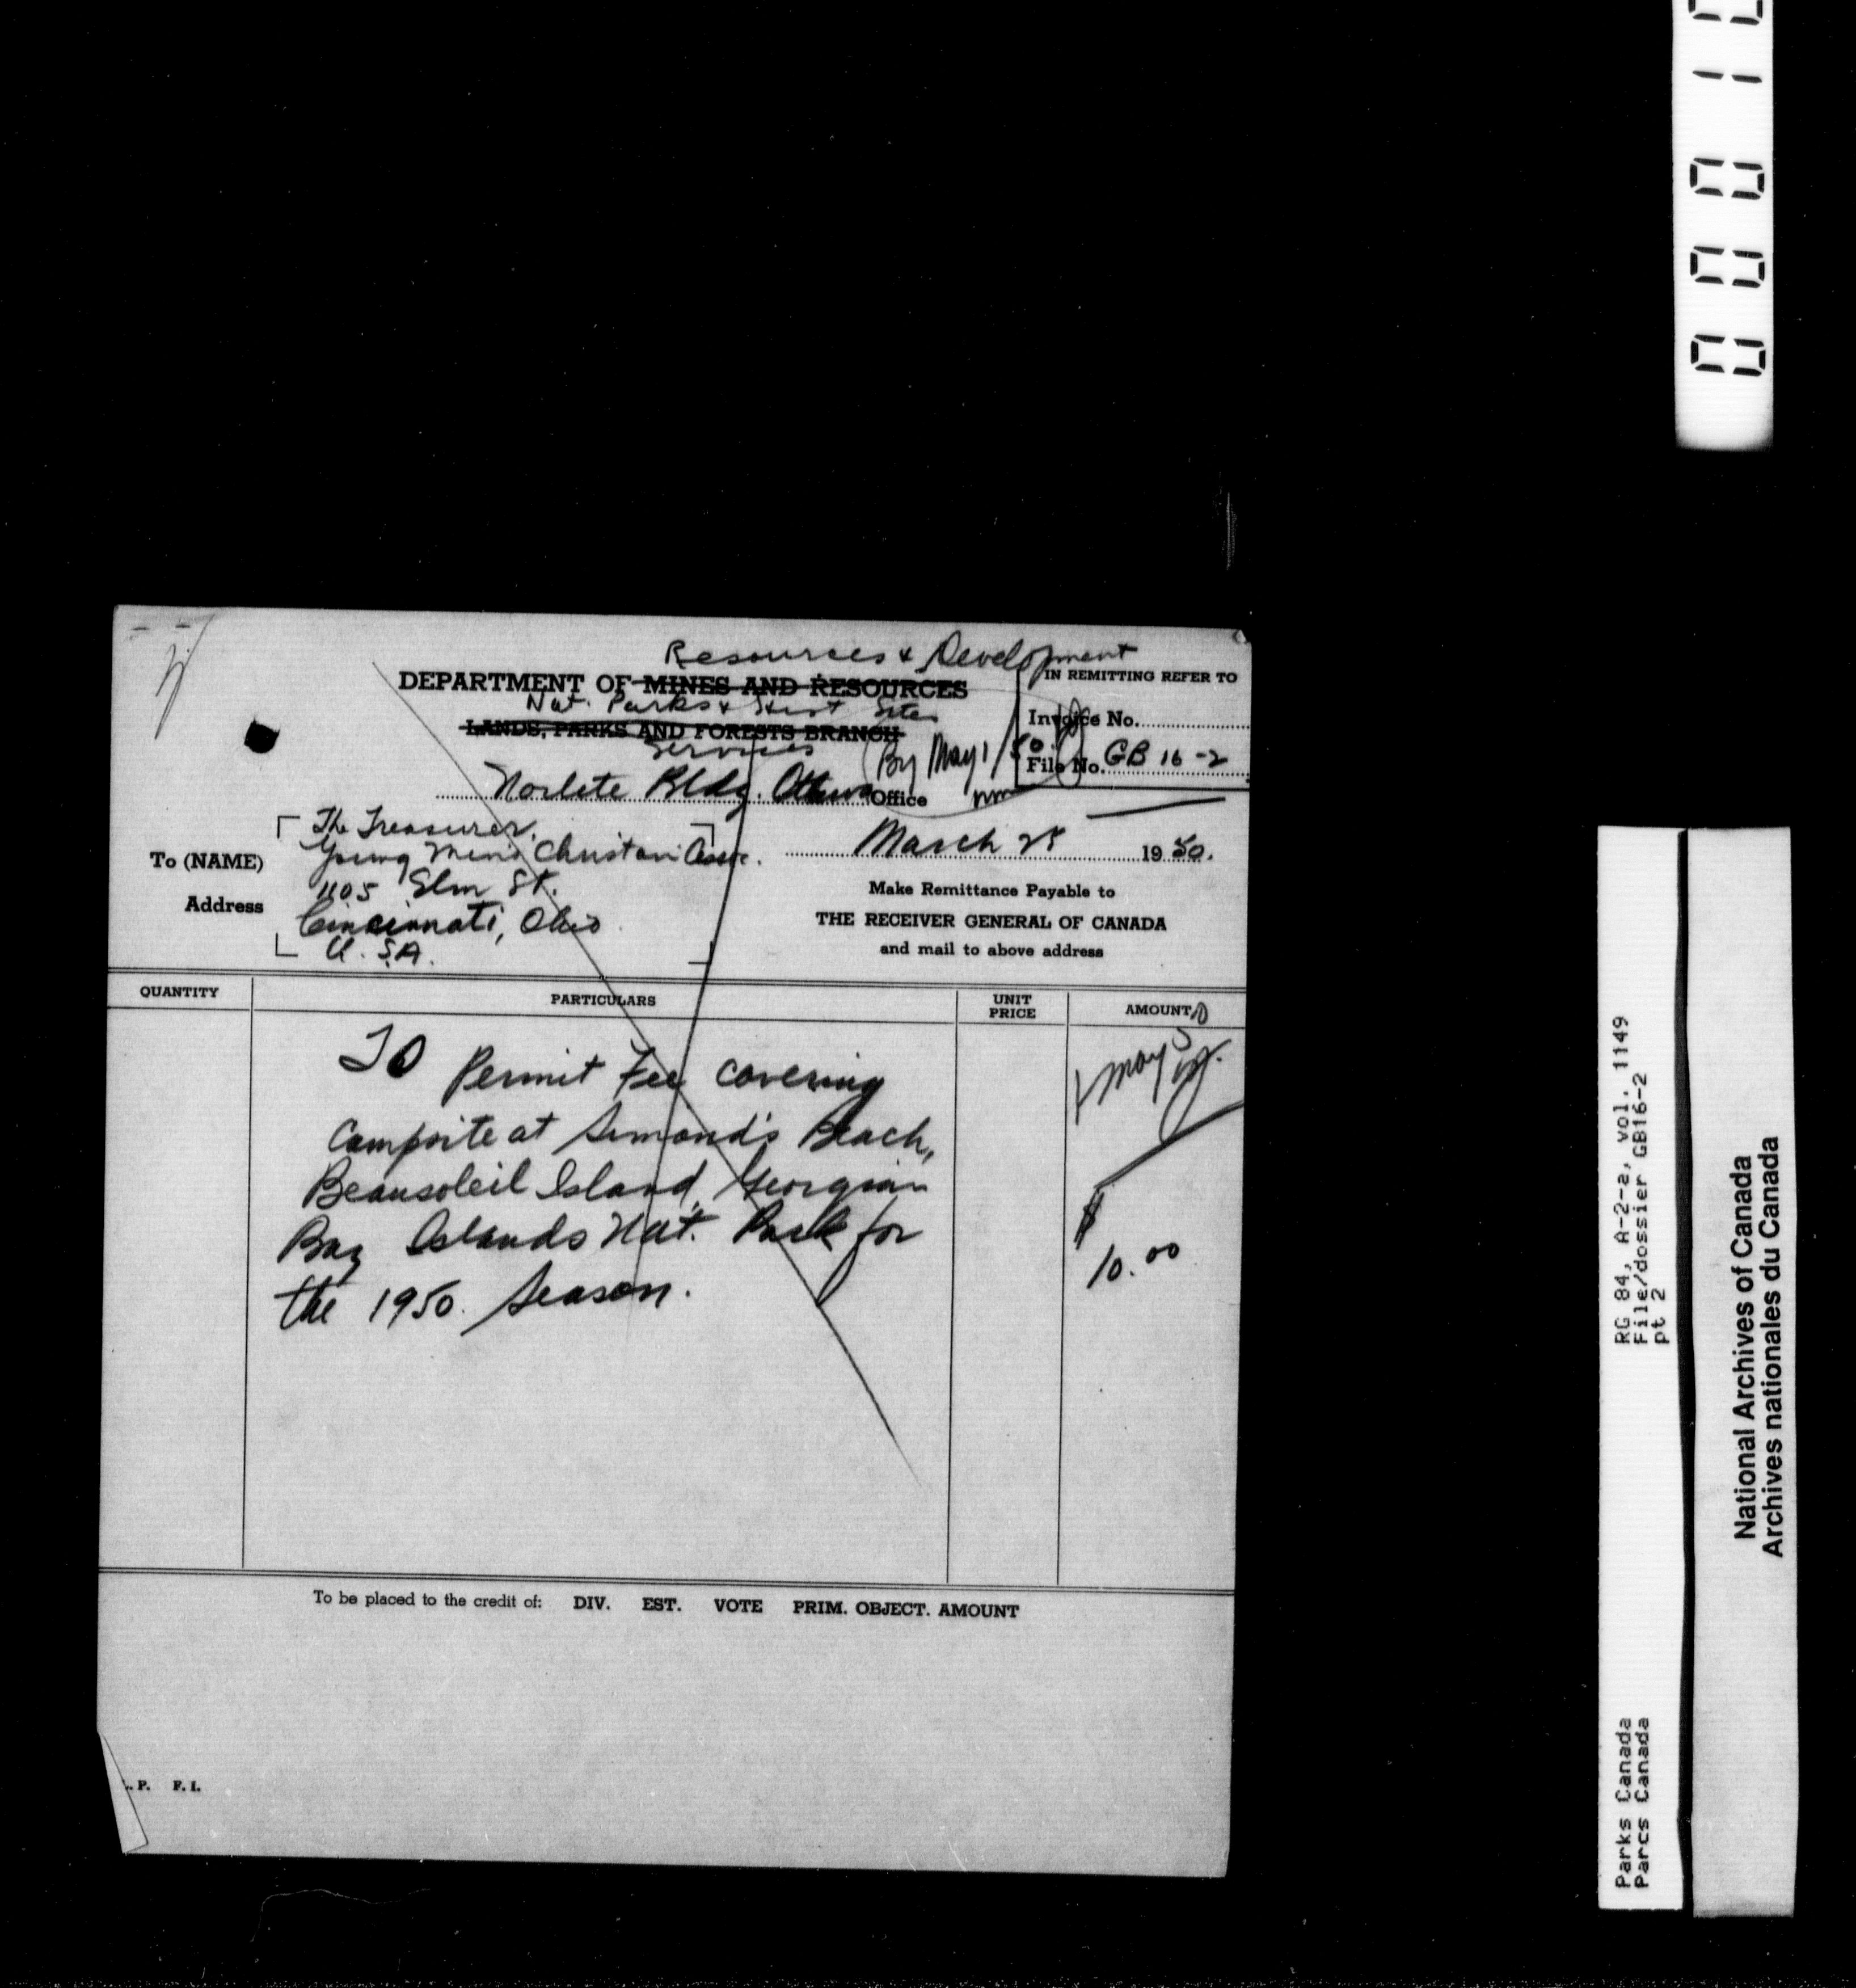 Resources & Development
DEPARTMENT OF MINES AND RESOURCES
IN REMITTING REFER TO
Nat. Parks & Hist Sites
LANDS, PARKS AND FORESTS BRANCH
Services
Invoice No.
By May 1/50.
File No. GB 16-2
Norlite Bldg. Ottawa Office
The Treasurer,
To (NAME) Young Men's Christian Assoc.
March 25 1950.
1105 Elm St.
Address Cincinnati, Ohio
U.S.A.
Make Remittance Payable to
THE RECEIVER GENERAL OF CANADA
and mail to above address
QUANTITY PARTICULARS UNIT PRICE AMOUNT
To Permit Fee covering
Campsite at Simond's Beach,
Beausoleil Island, Georgian
Bay Islands Nat. Park for
the 1950 Season.
May
$
10.00
To be placed to the credit of: DIV. EST. VOTE PRIM. OBJECT. AMOUNT
.P. F.I.
RG 84, A-2-a, vol. 1149
File/dossier GB16-2
pt 2
Parks Canada
Parcs Canada
National Archives of Canada
Archives nationales du Canada